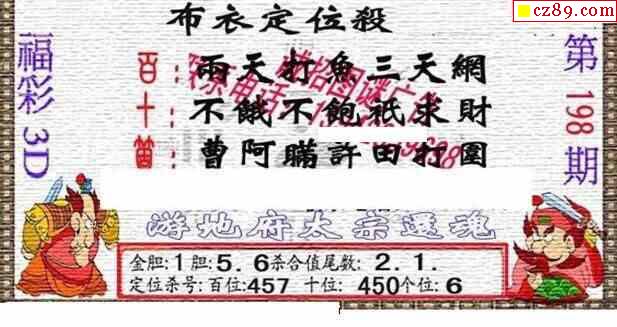 cz89.com
布衣定位殺
福彩3D
第198期
百：兩天打魚三天網
十：不餓不飽祇求財
笛：曹阿瞞許田打圍
游地府太宗還魂
金胆:1胆:5.6杀合值尾数:2.1.
定位杀号:百位:457 十位:450个位:6